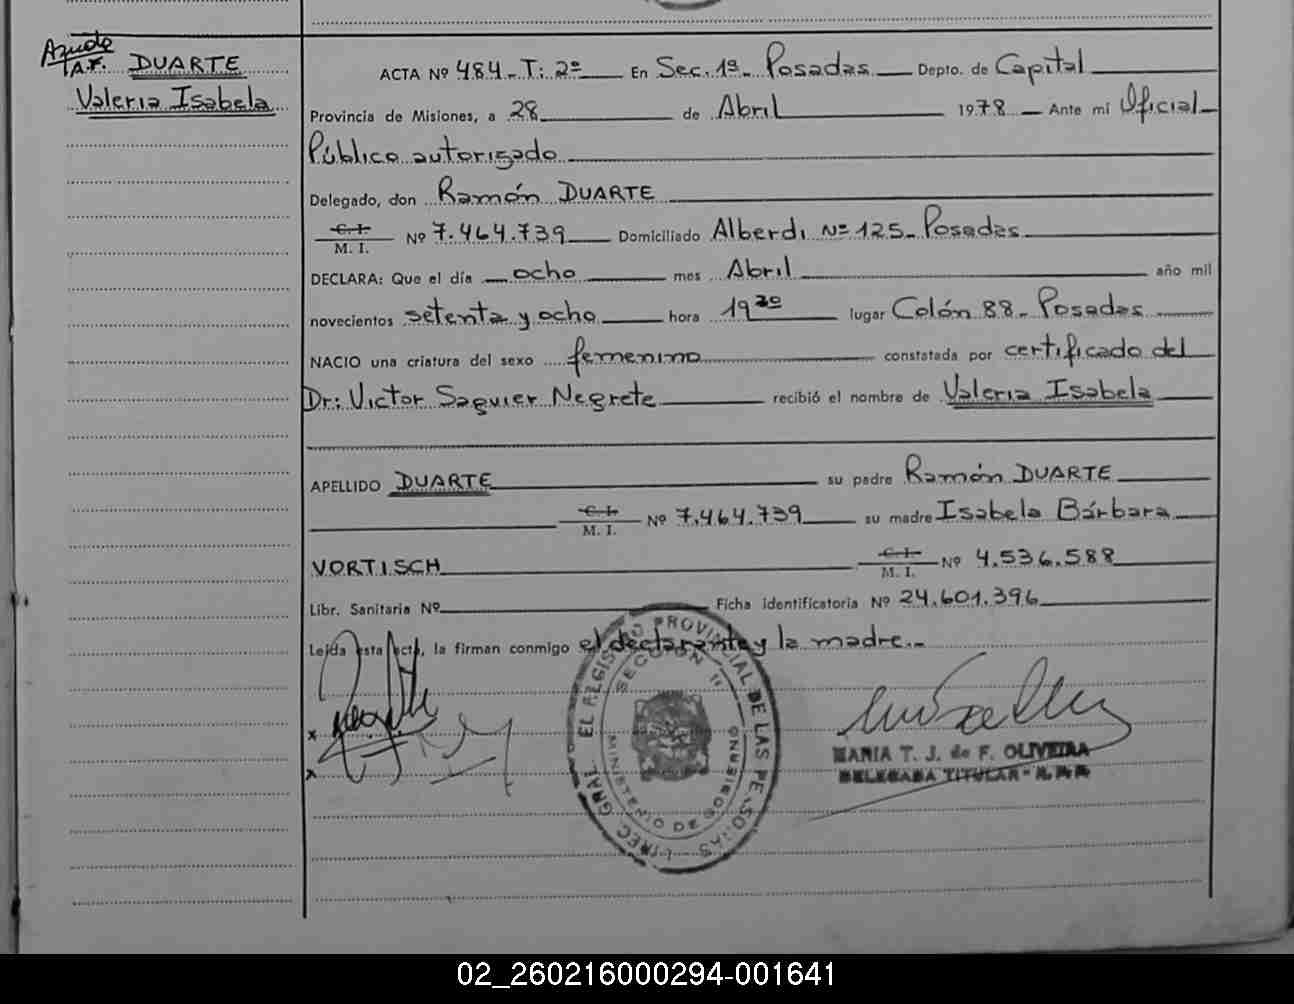 A.F. DUARTE
Valeria Isabela
ACTA Nº 484 - T: 2º En Sec. 1ª - Posadas Depto. de Capital
Provincia de Misiones, a 28 de Abril 1978 Ante mi Oficial
Público autorizado
Delegado, don Ramón DUARTE
C. I.
M. I. Nº 7.464.739 Domiciliado Alberdi Nº 125 - Posadas
DECLARA: Que el día ocho mes Abril año mil
novecientos setenta y ocho hora 19 30 lugar Colón 88 - Posadas
NACIO una criatura del sexo femenino constatada por certificado del
Dr: Victor Saguier Negrete recibió el nombre de Valeria Isabela
APELLIDO DUARTE su padre Ramón DUARTE
C. I.
M. I. Nº 7.464.739 su madre Isabela Bárbara
VORTISCH C. I.
M. I. Nº 4.536.588
Libr. Sanitaria Nº Ficha identificatoria Nº 24.601.396
Leida esta acta, la firman conmigo el declarante y la madre.-
x
x
REGISTRO PROVINCIAL DE LAS PERSONAS
DIREC. GRAL. DEL
SECCION 1ª
MINISTERIO DE GOBIERNO
MARIA T. J. de F. OLIVEIRA
DELEGADA TITULAR -
02_260216000294-001641